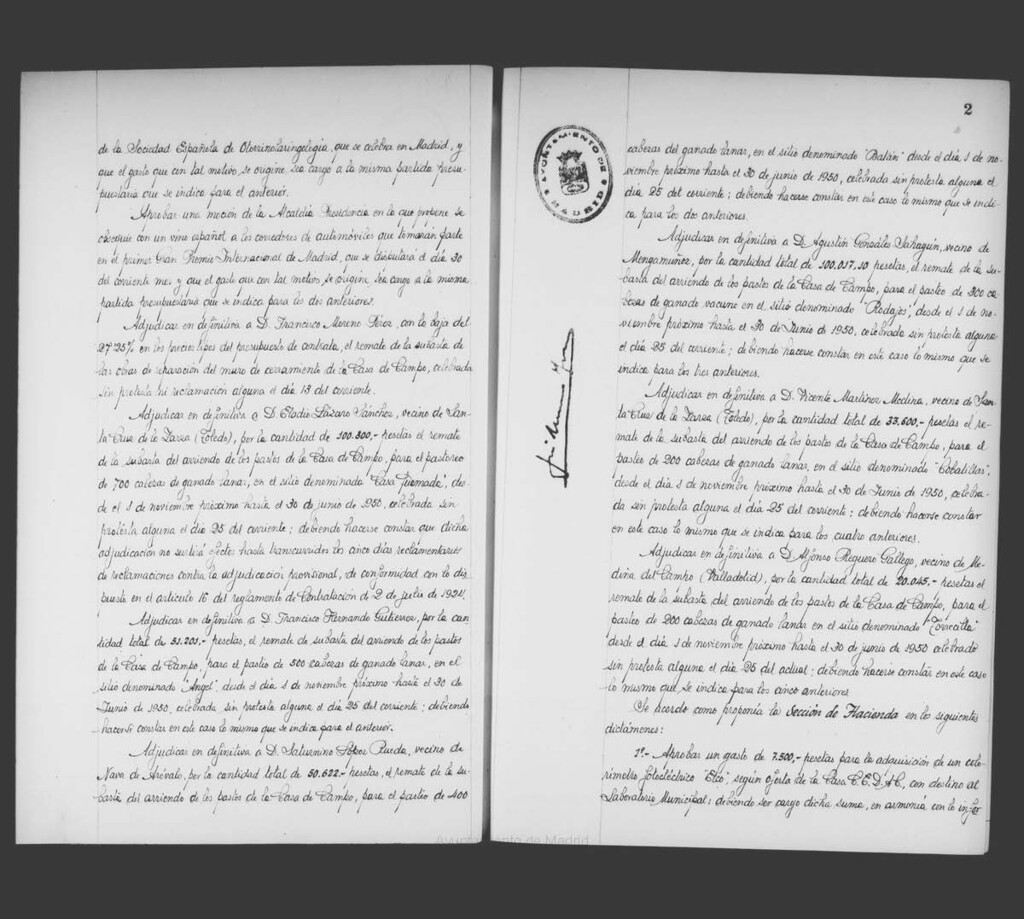 de la Sociedad Española de Otorrinolaringología, que se celebra en Madrid, y
que el gasto que con tal motivo, se origine sea cargo a la misma partida presu-
puestaria que se indica para el anterior.
Aprobar una moción de la Alcaldía Presidencia en la que propone se
obsequie con un vino español a los corredores de automóviles que tomarán parte
en el primer Gran Premio Internacional de Madrid, que se disputará el día 30
del corriente mes y que el gasto que con tal motivo, se origine, sea cargo a la misma
partida presupuestaria que se indica para los dos anteriores.
Adjudicar en definitiva a D. Francisco Moreno Pérez, con la baja del
27'25% en los precios tipos del presupuesto de contrata, el remate de la subasta de
las obras de reparación del muro de cerramiento de la Casa de Campo, celebrada
sin protesta ni reclamación alguna el día 13 del corriente.
Adjudicar en definitiva a D. Eladio Lázaro Sánchez, vecino de San-
ta Cruz de la Zarza (Toledo), por la cantidad de 100.300,- pesetas el remate
de la subasta del arriendo de los pastos de la Casa de Campo, para el pastoreo
de 700 cabezas de ganado lanar, en el sitio denominado "Casa Quemada", des-
de el 1 de noviembre próximo hasta el 30 de junio de 1950, celebrada sin
protesta alguna el día 25 del corriente; debiendo hacerse constar que dicha
adjudicación no surtirá efectos hasta transcurridos los cinco días reglamentarios
de reclamaciones contra la adjudicación provisional, de conformidad con lo dis-
puesto en el artículo 16 del reglamento de Contratación de 2 de julio de 1924.
Adjudicar en definitiva a D. Francisco Hernando Gutierrez, por la can-
tidad total de 51.201.- pesetas, el remate de subasta del arriendo de los pastos
de la Casa de Campo, para el pasteo de 500 cabezas de ganado lanar, en el
sitio denominado "Angel", desde el día 1 de noviembre próximo hasta el 30 de
Junio de 1950, celebrada sin protesta alguna el día 25 del corriente; debiendo
hacerse constar en este caso lo mismo que se indica para el anterior.
Adjudicar en definitiva a D. Saturnino López Rueda, vecino de
Nava de Arévalo, por la cantidad total de 50.622.- pesetas, el remate de la su-
basta del arriendo de los pastos de la Casa de Campo, para el pasteo de 400
AYUNTAMIENTO DE MADRID
2
cabezas del ganado lanar, en el sitio denominado "Batán" desde el día 1 de no-
viembre próximo hasta el 30 de junio de 1950, celebrada sin protesta alguna el
día 25 del corriente; debiendo hacerse constar en este caso lo mismo que se indi-
ca para los dos anteriores.
Adjudicar en definitiva a D. Agustín González Sahagún, vecino de
Mengamuñoz, por la cantidad total de 100.017,10 pesetas, el remate de la su-
basta del arriendo de los pastos de la Casa de Campo, para el pasteo de 300 ca-
bezas de ganado vacuno en el sitio denominado "Rodajos", desde el 1 de no-
viembre próximo hasta el 30 de Junio de 1950, celebrada sin protesta alguna
el día 25 del corriente; debiendo hacerse constar en este caso lo mismo que se
indica para los tres anteriores.
Adjudicar en definitiva a D. Vicente Martínez Medina, vecino de San-
ta Cruz de la Zarza (Toledo), por la cantidad total de 33.600.- pesetas el re-
mate de la subasta del arriendo de los pastos de la Casa de Campo, para el
pasteo de 200 cabezas de ganado lanar, en el sitio denominado "Cobatillas",
desde el día 1 de noviembre próximo hasta el 30 de Junio de 1950, celebra-
da sin protesta alguna el día 25 del corriente; debiendo hacerse constar
en este caso lo mismo que se indica para los cuatro anteriores.
Adjudicar en definitiva a D. Alfonso Reguero Gallego, vecino de Me-
dina del Campo (Valladolid), por la cantidad total de 20.045.- pesetas el
remate de la subasta del arriendo de los pastos de la Casa de Campo, para el
pasteo de 200 cabezas de ganado lanar en el sitio denominado "Torrecilla"
desde el día 1 de noviembre próximo hasta el 30 de junio de 1950 celebrado
sin protesta alguna el día 25 del actual; debiendo hacerse constar en este caso
lo mismo que se indica para los cinco anteriores
Se acordó como proponía la Sección de Hacienda en los siguientes
dictámenes:
1º.- Aprobar un gasto de 7.500,- pesetas para la adquisición de un colo-
rímetro fotoeléctrico "Elco", según oferta de la Casa C.E.D.A.C, con destino al
Laboratorio Municipal; debiendo ser cargo dicha suma, en armonía con lo infor-
Ayuntamiento de Madrid